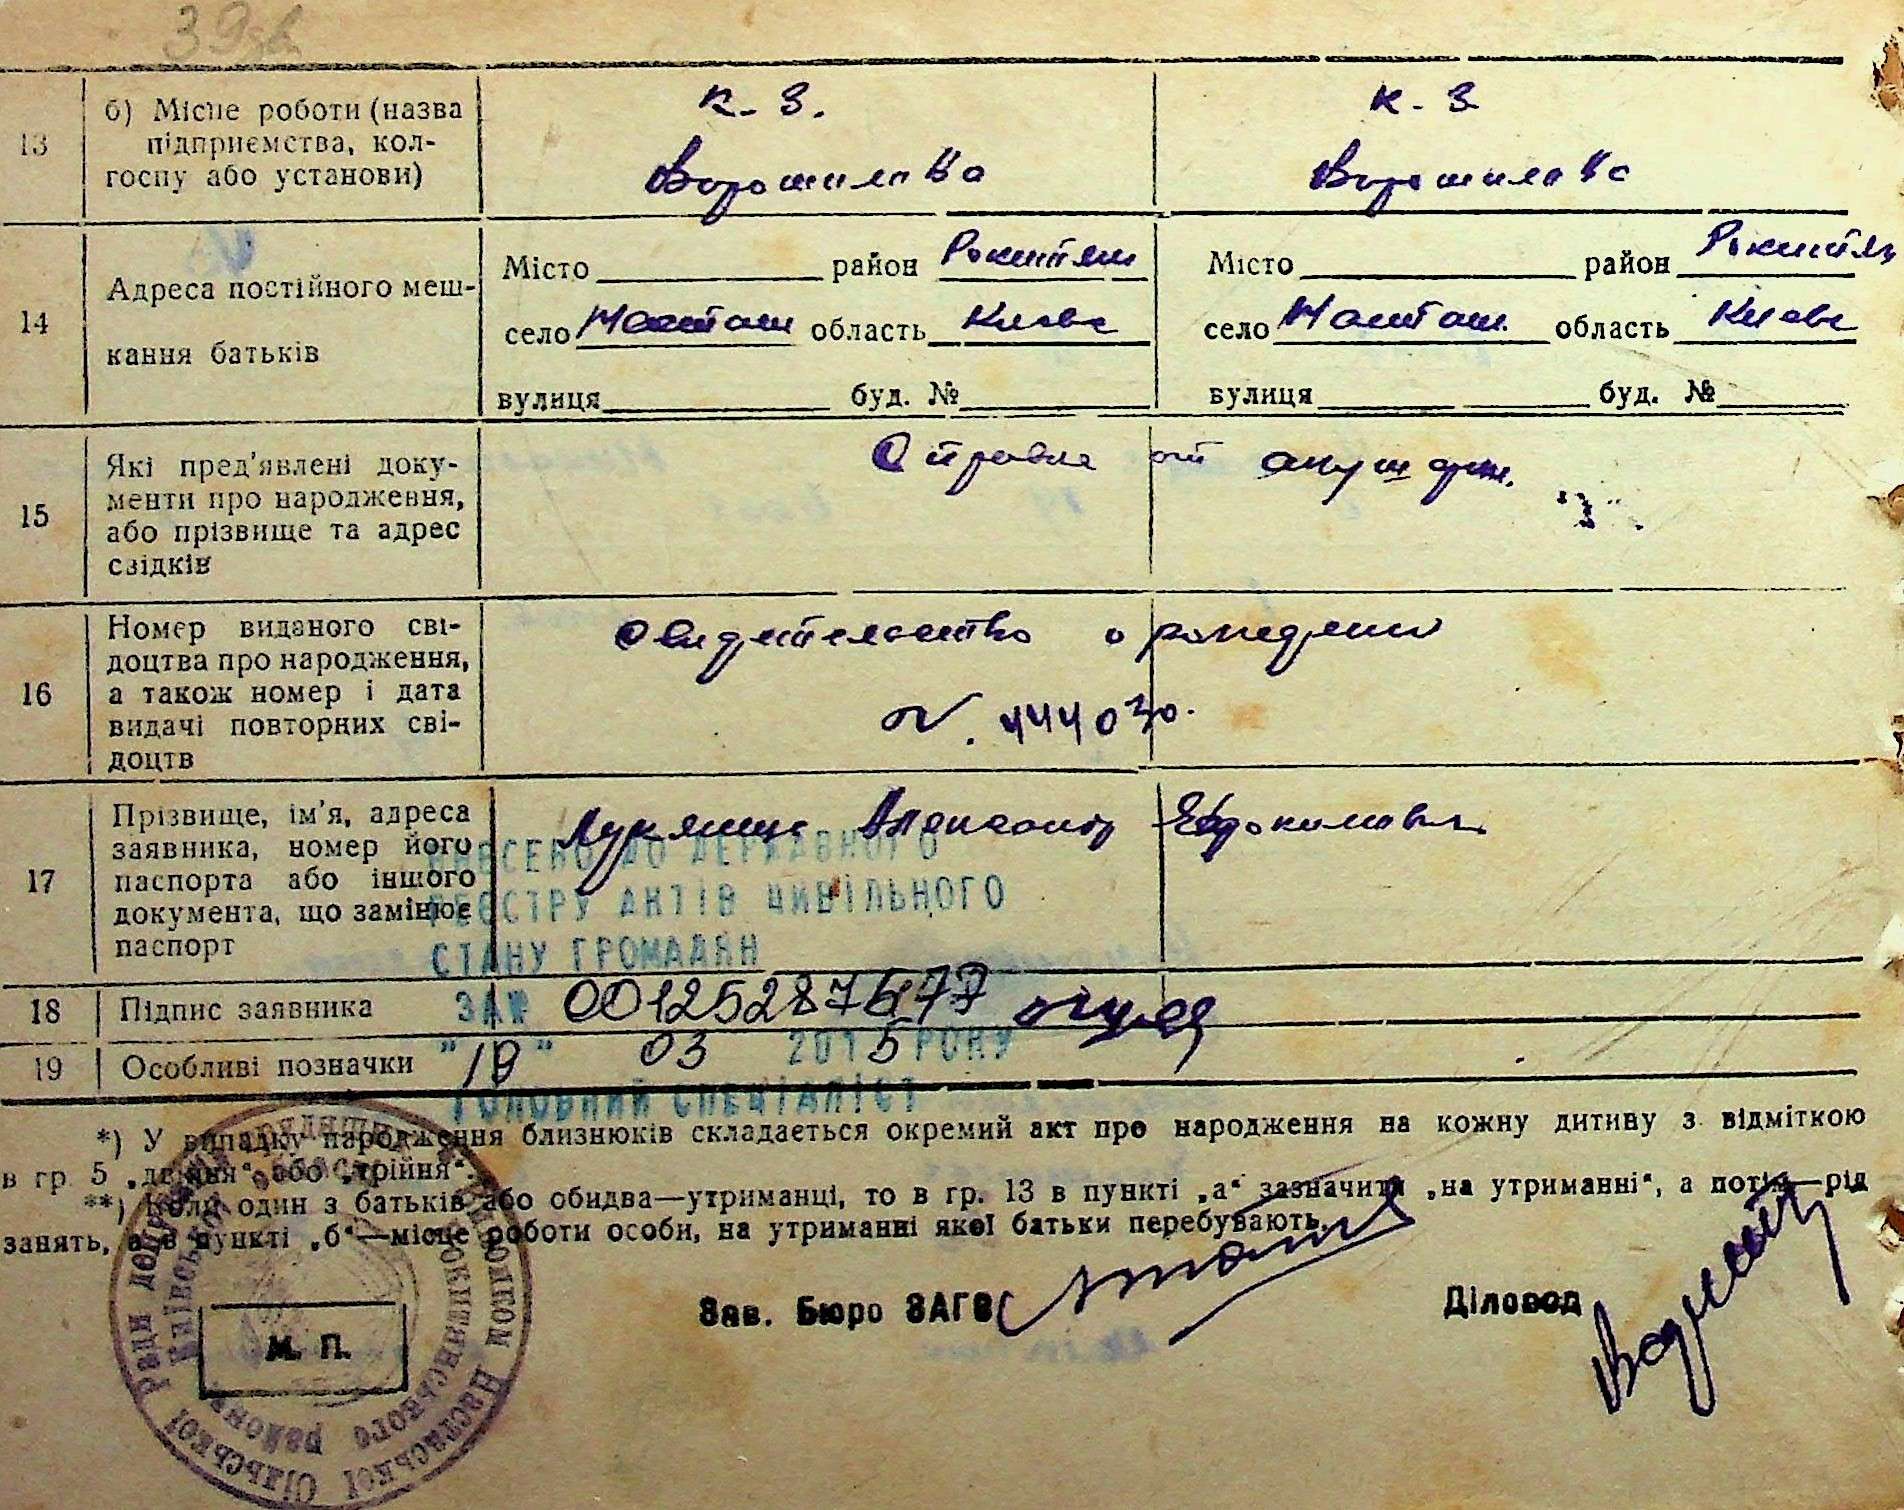 39зв
13 б) Місце роботи (назва
підприємства, кол-
госпу або установи)
к-з. к-з
Ворошилова Ворошилова
14 Адреса постійного меш-
кання батьків
Місто район Рокитян Місто район Рокитян
село область Киевс село область Киевс
вулиця буд. № вулиця буд. №
15 Які пред'явлені доку-
менти про народження,
або прізвище та адрес
свідків
Справка от акушерки.
16 Номер виданого сві-
доцтва про народження,
а також номер і дата
видачі повторних сві-
доцтв
Свидетельство о рождении
N. 444030.
17 Прізвище, ім'я, адреса
заявника, номер його
паспорта або іншого
документа, що замінює
паспорт
Александр Евдокимович
ВНЕСЕНО ДО ДЕРЖАВНОГО
РЕЄСТРУ АКТІВ ЦИВІЛЬНОГО
СТАНУ ГРОМАДЯН
18 Підпис заявника
ЗА №
19 Особливі позначки
03 2015 РОКУ
ГОЛОВНИЙ СПЕЦІАЛІСТ
*) У випадку народження близнюків складається окремий акт про народження на кожну дитину з відміткою
в гр. 5 „двійня“ або „трійня“.
**) Коли один з батьків або обидва—утриманці, то в гр. 13 в пункті „а“ зазначити „на утриманні“, а потім—рід
занять, а в пункті „б“—місце роботи особи, на утриманні якої батьки перебувають.
Зав. Бюро ЗАГС Діловод
М. П.
Сільської Ради
Рокитянського району